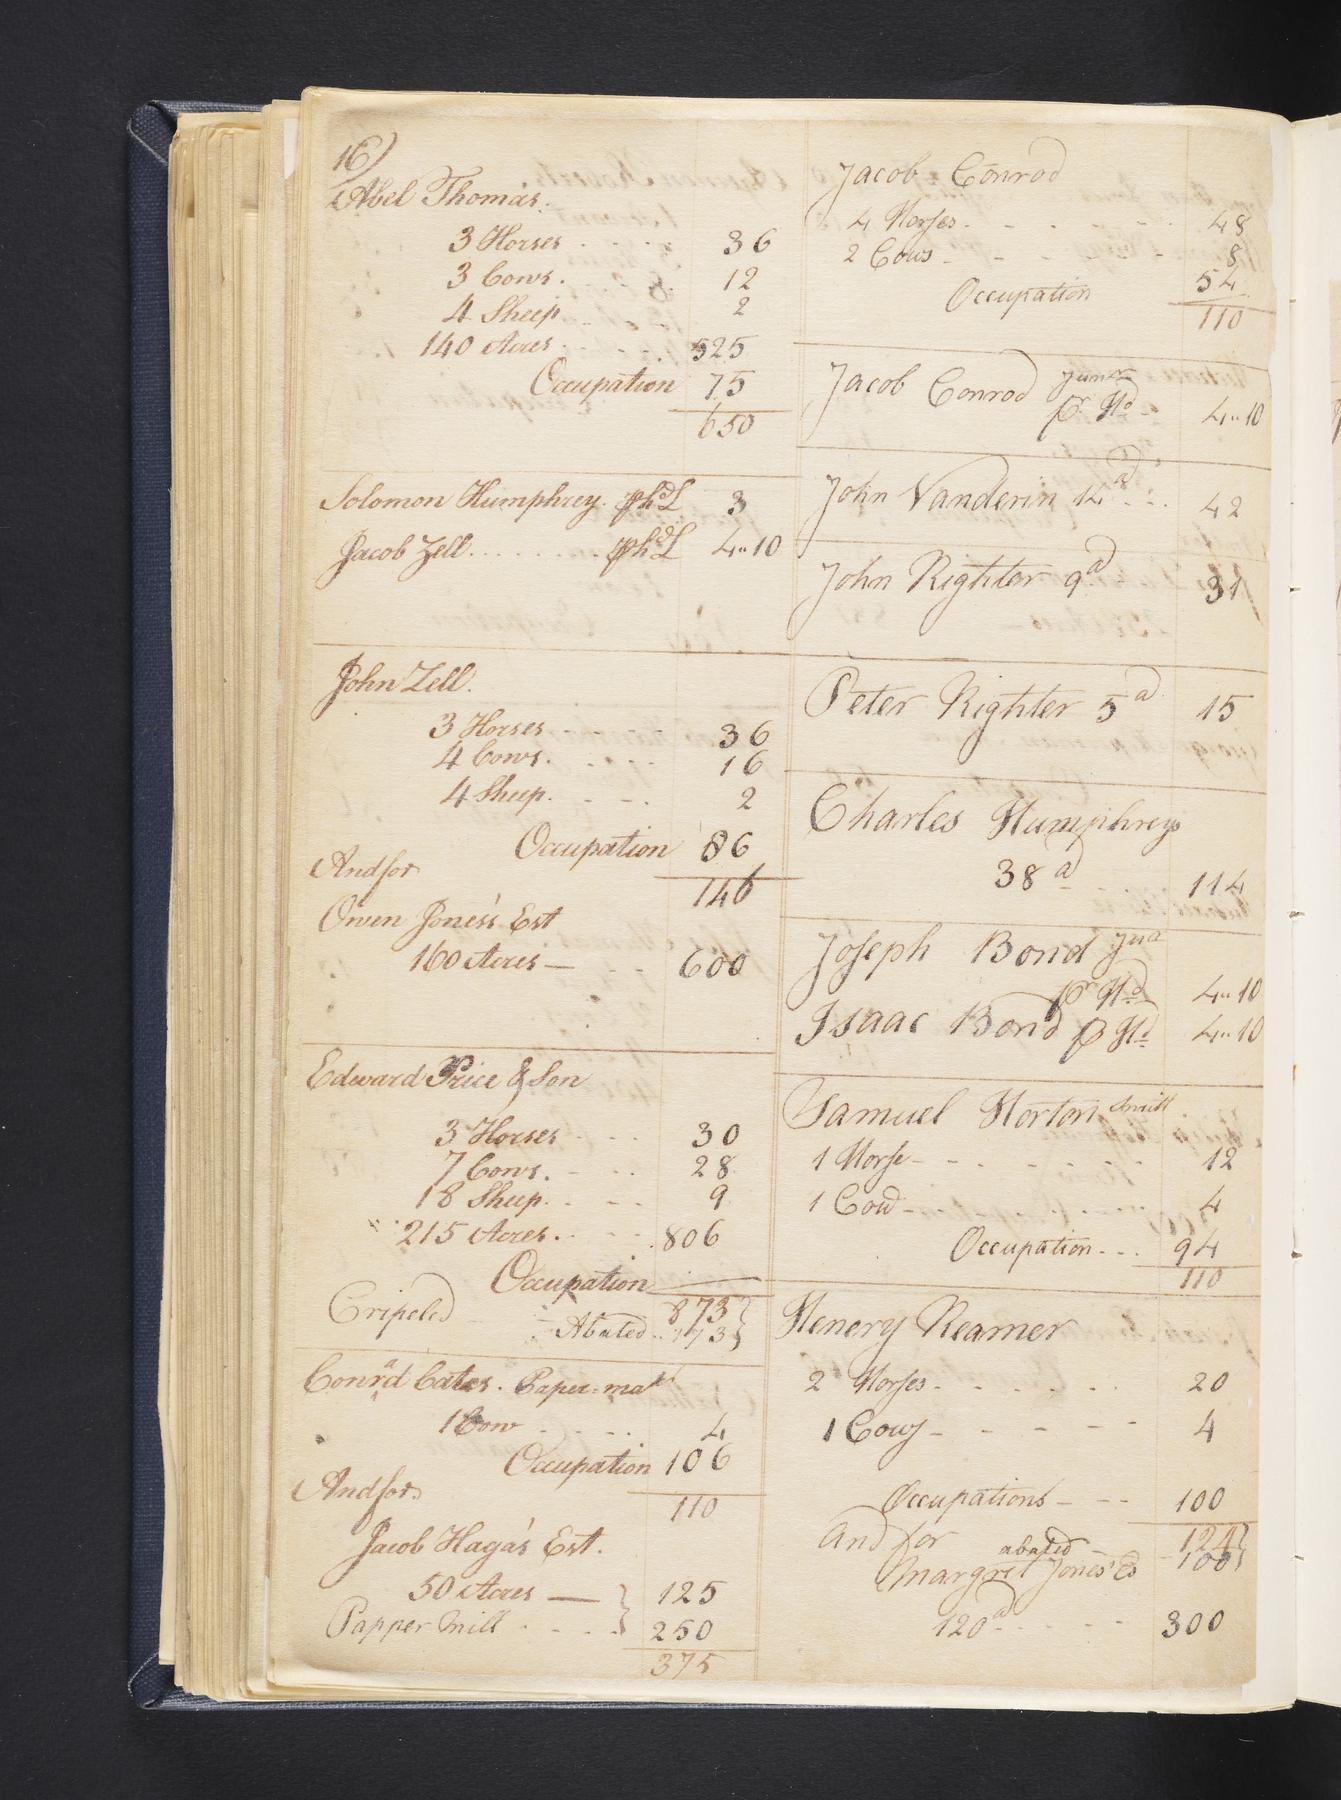 16)
Abel Thomas.
3 Horses 36
3 Cows. 12
4 Sheep 2
140 Acres 525
Occupation 75
650
Solomon Humphrey. 3
Jacob Zell 4"10
John Zell.
3 Horses 36
4 Cows. 16
4 Sheep. 2
Occupation 86
And for 146
Owen Jones's Est
160 Acres — 600
Edward Price & Son
3 Horses 30
7 Cows. 28
18 Sheep. 9
215 Acres. 806
Occupation
Cripeled 873
Abated 773
Conrad Cates. Paper=mak
1 Cow 4
Occupation 106
And for 110
Jacob Haga's Est.
50 Acres — 125
Papper Mill 250
375
Jacob Conrod
4 Horses 48
2 Cows 8
Occupation 54
110
Jacob Conrod Junr
pr Hd 4"10
John Vanderin 14a 42
John Righter 9a 31
Peter Righter 5a 15
Charles Humphreys
38a 114
Joseph Bond Jur
pr Hd 4"10
Isaac Bond pr Hd 4"10
Samuel Horton Smith
1 Horse 12
1 Cow 4
Occupation 94
110
Henery Reamer
2 Horses 20
1 Cow 4
Occupations 100
And for 124
abated 100
Margret Jones' Es
120a 300